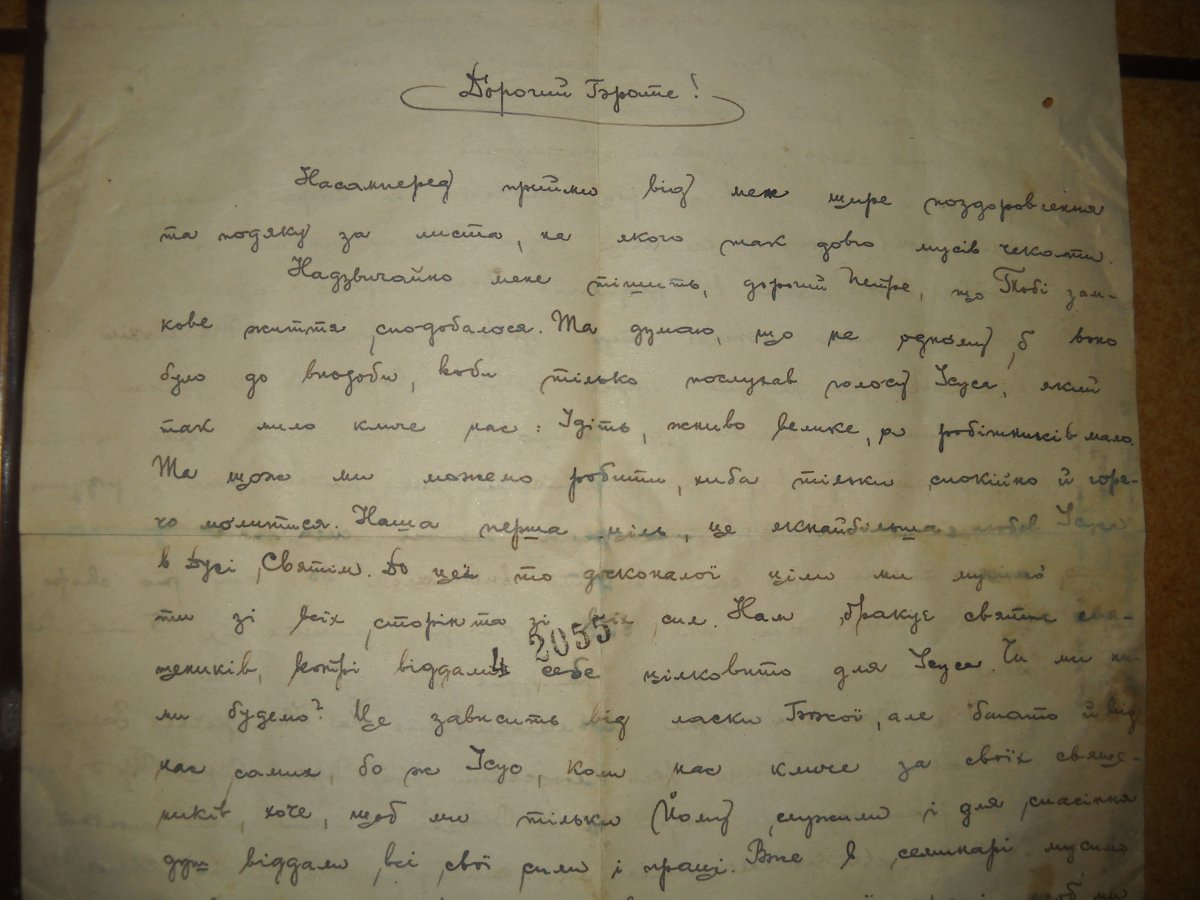 Дорогий Брате!
Насамперед прийми від мене щире поздоровлення
та подяку за листа, на якого так довго мусів чекати.
Надзвичайно мене тішить, дорогий Петре, що Тобі зам-
кове життя сподобалося. Та думаю, що не одному б воно
було до вподоби, коби тільки послухав голосу Ісуса, який
так мило кличе нас: Ідіть, жниво велике, а робітників мало.
Та щож ми можемо робити, хиба тільки спокійно й горя-
чо молитися. Наша перша ціль, це якнайбільша любов Ісуса
в Дусі Святім. До цеї то досконалої ціли ми мусимо
ти зі всіх сторін та зі всіх сил. Нам бракує святих свя-
щеників, котрі віддали 4 себе цілковито для Ісуса. Чи ми ни-
2055
ми будемо? Це зависить від ласки Божої, але багато й від
нас самих, бо ж Ісус, коли нас кличе за своїх свяще-
ників, хоче, щоб ми тільки Йому служили і для спасіння
душ віддали всі свої сили і праці. Вже в семинарі мусимо
щоб ми